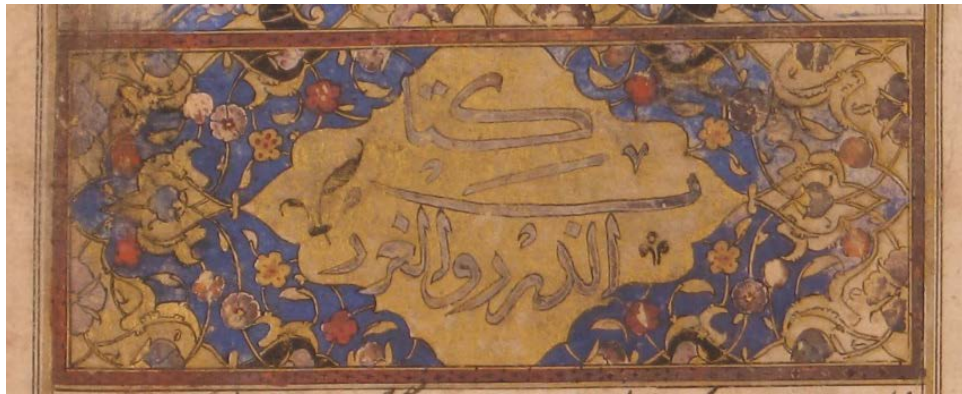 كتاب
الدرر والغرر